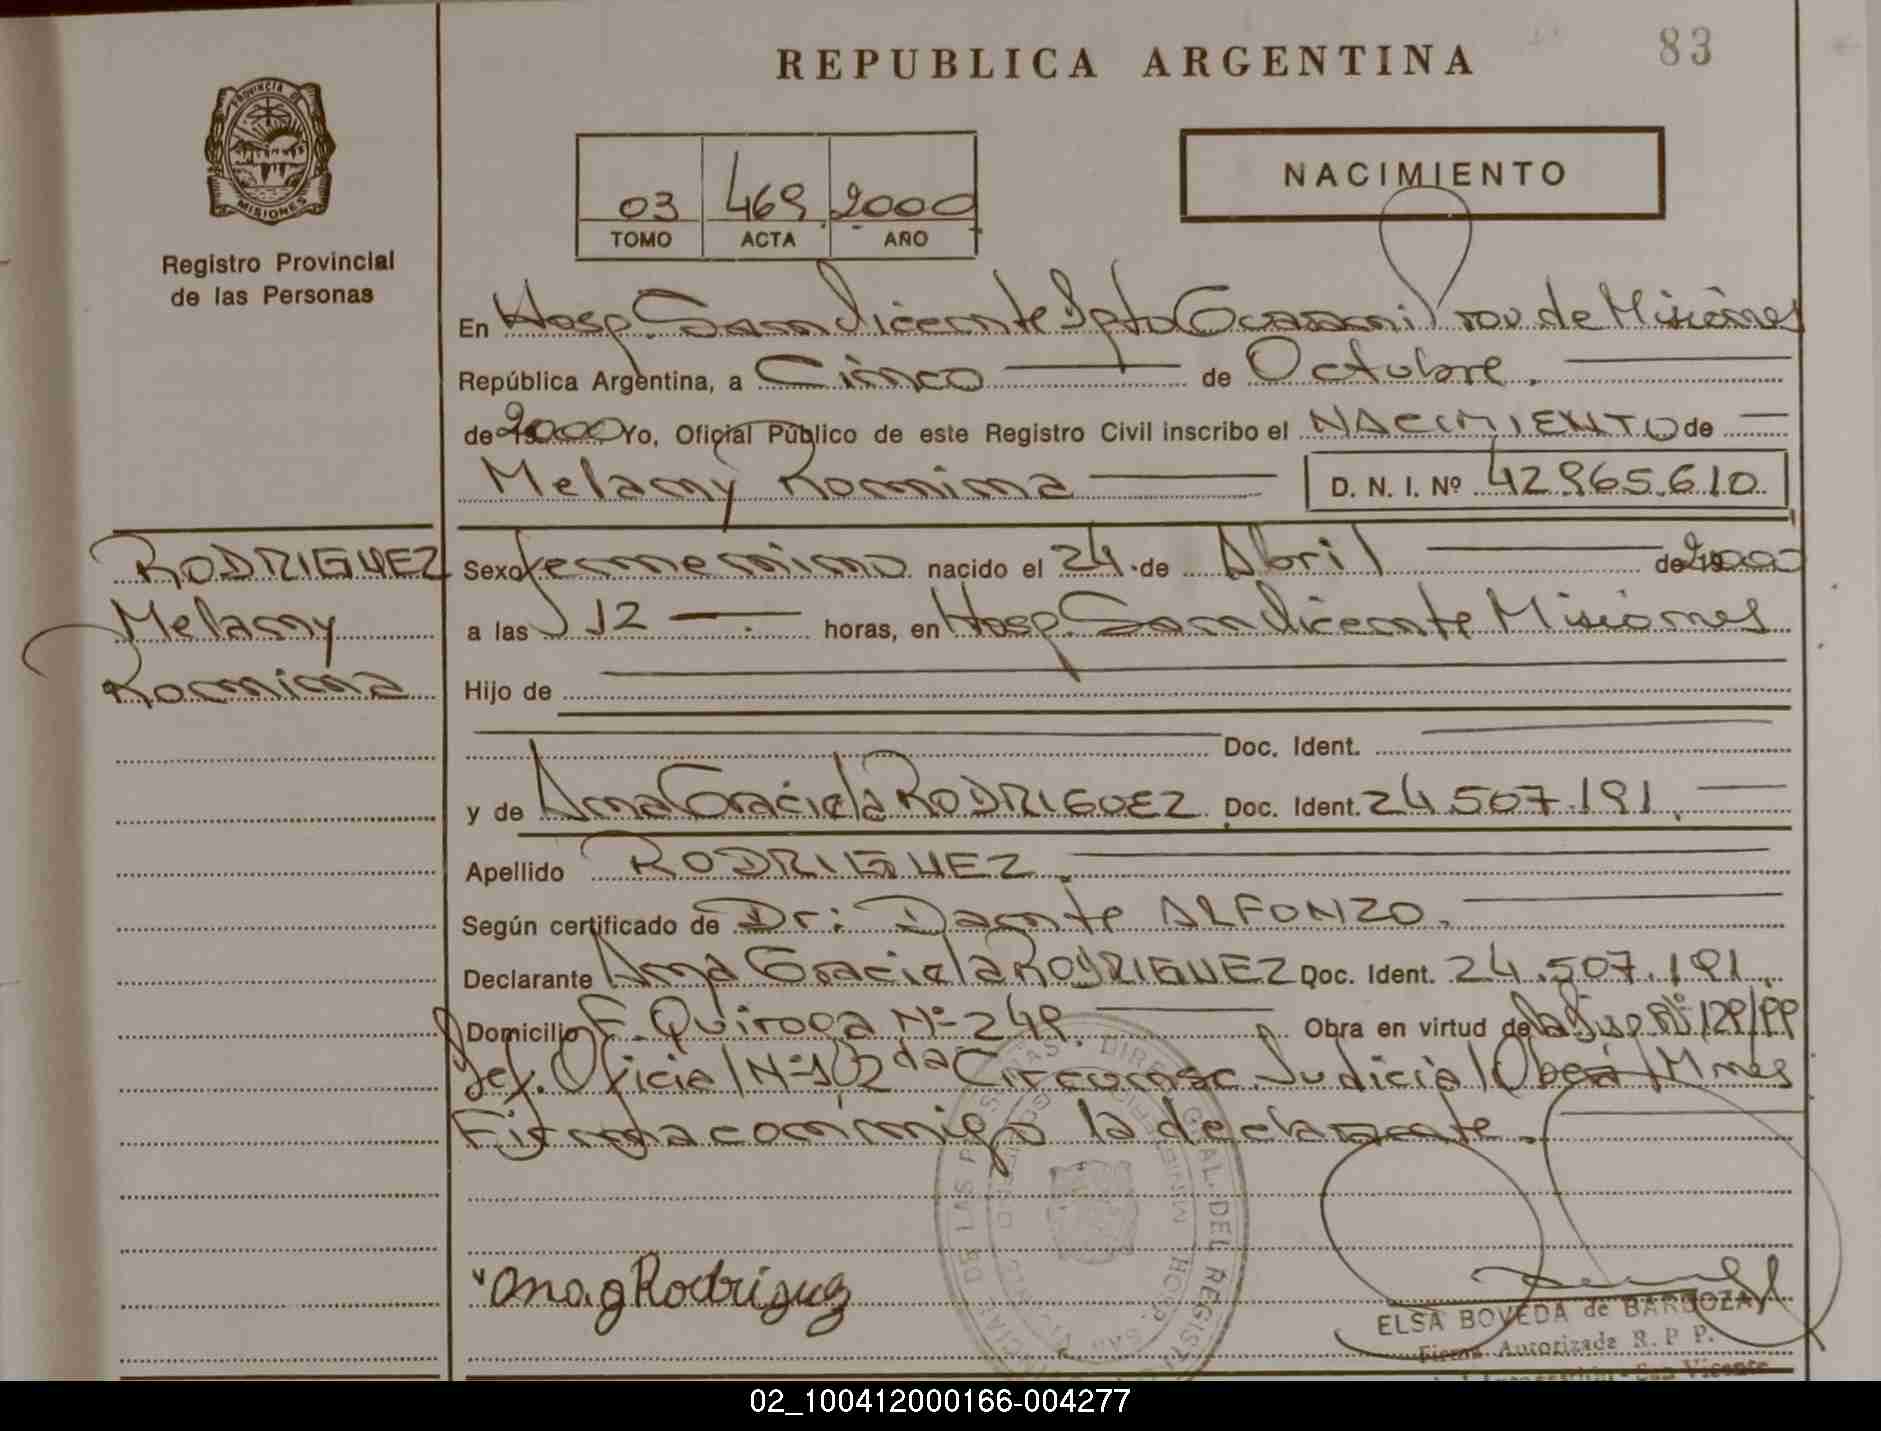 83
REPUBLICA ARGENTINA
PROVINCIA DE
MISIONES
Registro Provincial
de las Personas
03 469 2000
TOMO ACTA AÑO
NACIMIENTO
En Hosp. San Vicente Dpto Guaraní Prov. de Misiones
República Argentina, a Cinco de Octubre.
de 2000 Yo, Oficial Público de este Registro Civil inscribo el NACIMIENTO de
Melany Romina D. N. I. Nº 42.965.610
RODRIGUEZ
Melany
Romina
Sexo femenino nacido el 24 de Abril de 2000
a las 12 horas, en Hosp. San Vicente Misiones
Hijo de
Doc. Ident.
y de Ana Graciela RODRIGUEZ Doc. Ident. 24.507.191.
Apellido RODRIGUEZ.
Según certificado de Dr: Dante ALFONZO.
Declarante Ana Graciela RODRIGUEZ Doc. Ident. 24.507.191.
Domicilio F. Quiroga Nº 249 Obra en virtud de la
Def. Oficial Nº 1 2da Circunsc. Judicial Oberá Mnes
Firma conmigo la declarante.
Ana g Rodriguez
ELSA BOVEDA de BARBOZA
Firma Autorizada R. P. P.
San Vicente
02_100412000166-004277